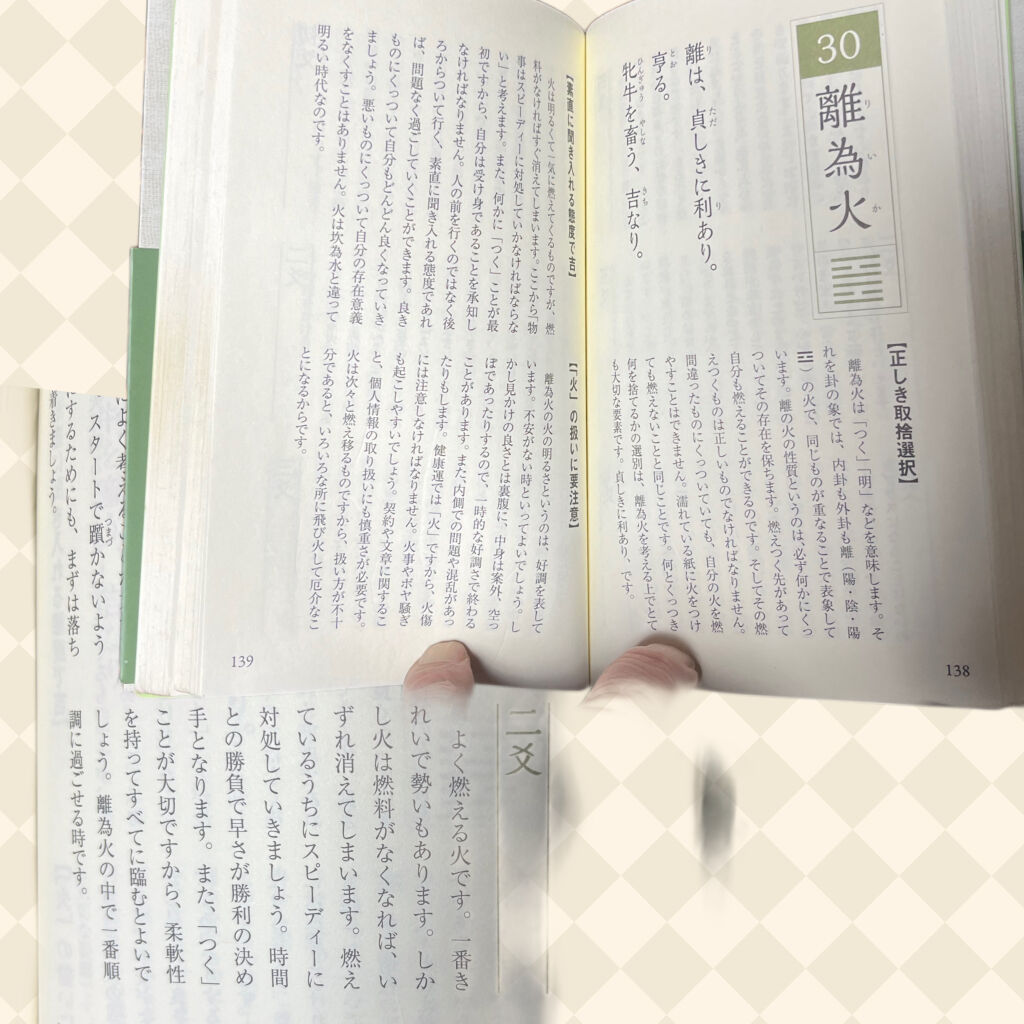 30
離為火
りいか
離は、貞しきに利あり。
亨る。
牝牛を畜う、吉なり。
【正しき取捨選択】
離為火は「つく」「明」などを意味します。そ
れを卦の象では、内卦も外卦も離（陽・陰・陽
☲）の火で、同じものが重なることで表象して
います。離の火の性質というのは、必ず何かにくっ
ついてその存在を保ちます。燃えつく先があって
自分も燃えることができるのです。そしてその燃
えつくものは正しいものでなければなりません。
間違ったものにくっついていても、自分の火を燃
やすことはできません。濡れている紙に火をつけ
ても燃えないことと同じことです。何とくっつき
何を捨てるかの選別は、離為火を考える上でとて
も大切な要素です。貞しきに利あり、です。
138
【素直に聞き入れる態度で吉】
火は明るくて一気に燃えてくるものですが、燃
料がなければすぐ消えてしまいます。ここから「物
事はスピーディーに対処していかなければならな
い」と考えます。また、何かに「つく」ことが最
初ですから、自分は受け身であることを承知し
なければなりません。人の前を行くのではなく後
ろからついて行く、素直に聞き入れる態度であれ
ば、問題なく過ごしていくことができます。良き
ものにくっついて自分もどんどん良くなっていき
ましょう。悪いものにくっついて自分の存在意義
をなくすことはありません。火は坎為水と違って
明るい時代なのです。
【「火」の扱いに要注意】
離為火の火の明るさというのは、好調を表して
います。不安がない時といってよいでしょう。し
かし見かけの良さとは裏腹に、中身は案外、空っ
ぽであったりするので、一時的な好調さで終わる
ことがあります。また、内側での問題や混乱があっ
たりもします。健康運では「火」ですから、火傷
には注意しなければなりません。火事やボヤ騒ぎ
も起こしやすいでしょう。契約や文章に関するこ
と、個人情報の取り扱いにも慎重さが必要です。
火は次々と燃え移るものですから、扱い方が不十
分であると、いろいろな所に飛び火して厄介なこ
とになるからです。
139
スタートで躓かないよう
にするためにも、まずは落ち
着きましょう。
二爻
よく燃える火です。一番き
れいで勢いもあります。しか
し火は燃料がなくなれば、い
ずれ消えてしまいます。燃え
ているうちにスピーディーに
対処していきましょう。時間
との勝負で早さが勝利の決め
手となります。また、「つく」
ことが大切ですから、柔軟性
を持ってすべてに臨むとよいで
しょう。離為火の中で一番順
調に過ごせる時です。